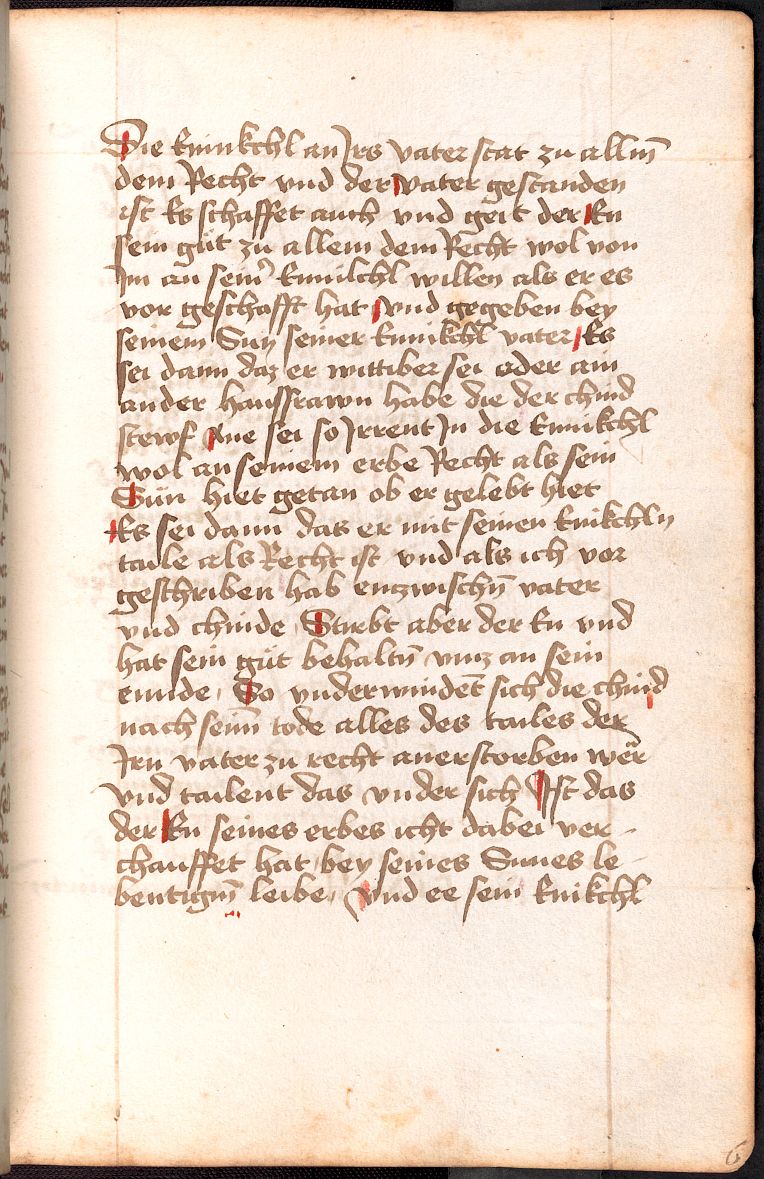 Die Eninkchl an Irs vater stat zu allm̄
dem Recht vnd der vater gestanden
ist Es schaffet auch vnd geit der En
sein güt zu allem dem Recht wol von
Im an seiner Eninkchl willen als er es
vor geschafft hat vnd gegeben bey
seinem Sun seiner Eninkchl vater Es
sei dann daz er wittiber sei oder ain
ander hausfrawn habe die der chind
stewf Ane sei so Irrent In die Eninkchl
wol an seinem erbe Recht als sein
Sün hiet getan ob er gelebt hiet
Es sei dann das er mit seinen Enikchln
taile als Recht ist vnd als ich vor
geschriben hab enczwischn̄ vater
vnd chinde Stirbt aber der En vnd
hat sein güt behaltn̄ vncz an sein
ennde So vnderwindet sich die chind
nach seim̄ tode alles des tailes der
Irn vater zu recht anerstorben wër
vnd tailent das vnder sich Ist das
der En seines erbes icht dabei ver-
chauffet hat bey seines Sunes le-
bentigm̄ leibe vnd ee sein Enikchl
6